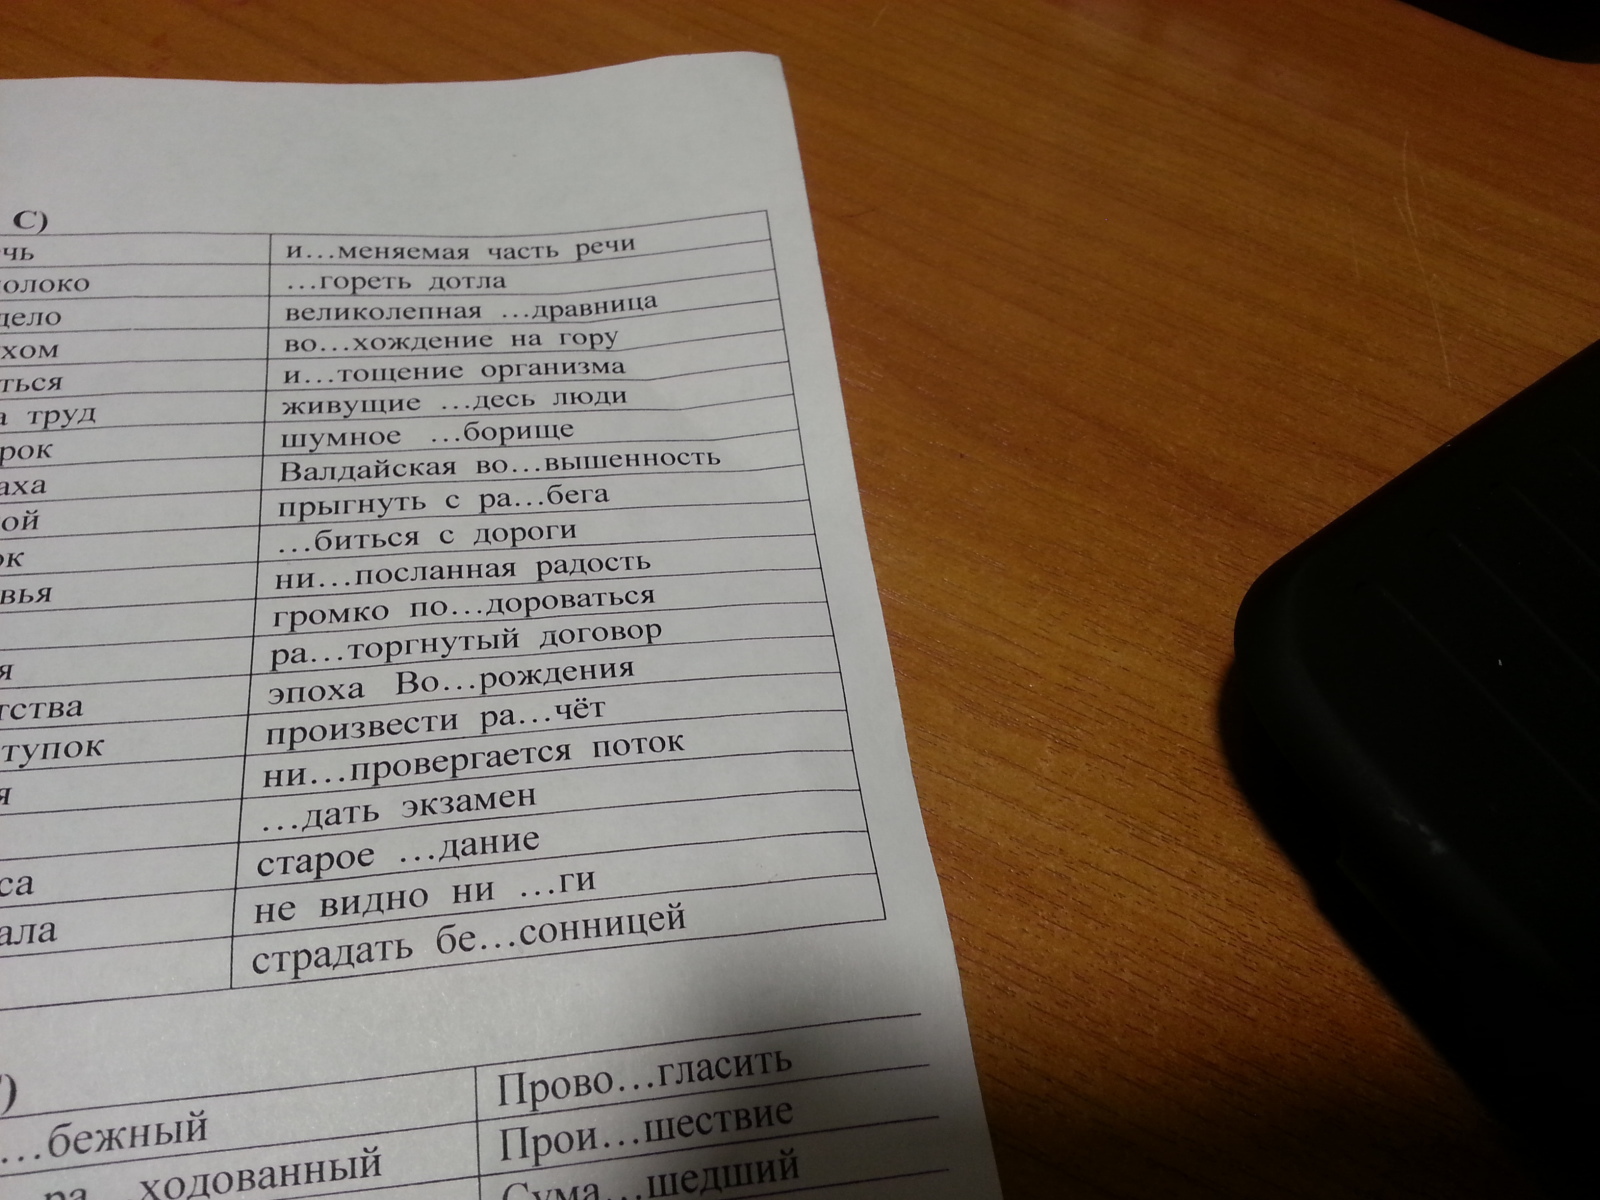 С)
чь и…меняемая часть речи
олоко …гореть дотла
дело великолепная …дравница
хом во…хождение на гору
ться и…тощение организма
а труд живущие …десь люди
рок шумное …борище
аха Валдайская во…вышенность
ой прыгнуть с ра…бега
ок …биться с дороги
вья ни…посланная радость
громко по…дороваться
я ра…торгнутый договор
тства эпоха Во…рождения
тупок произвести ра…чёт
я ни…провергается поток
…дать экзамен
са старое …дание
ала не видно ни …ги
страдать бе…сонницей
)
…бежный Прово…гласить
ра…ходованный Прои…шествие
Сума…шедший